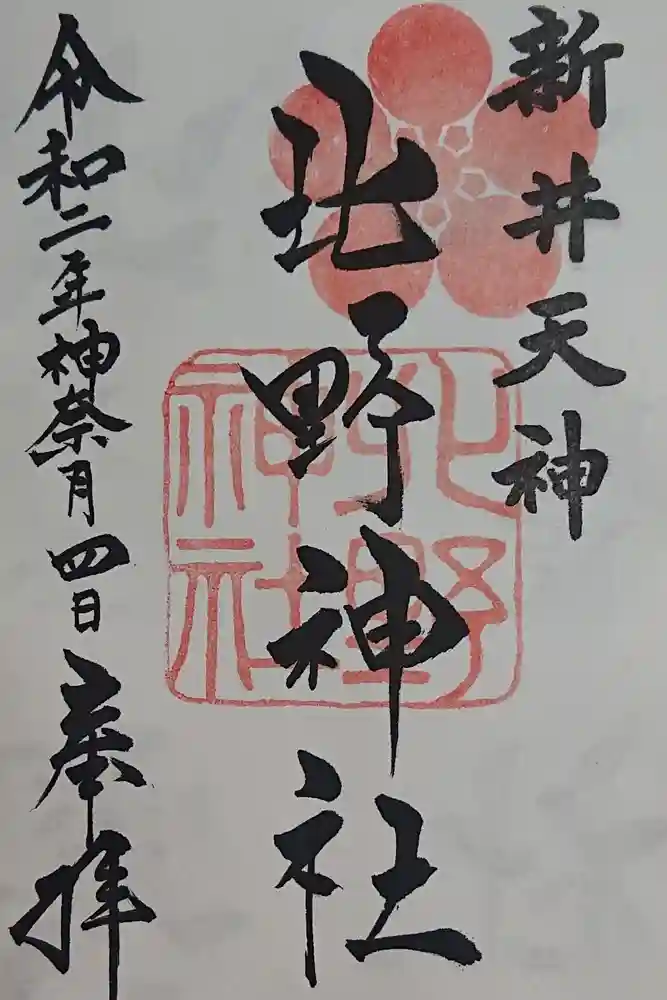 新井天神
北野神社
令和二年神奈月四日 奉拝
北野
神社